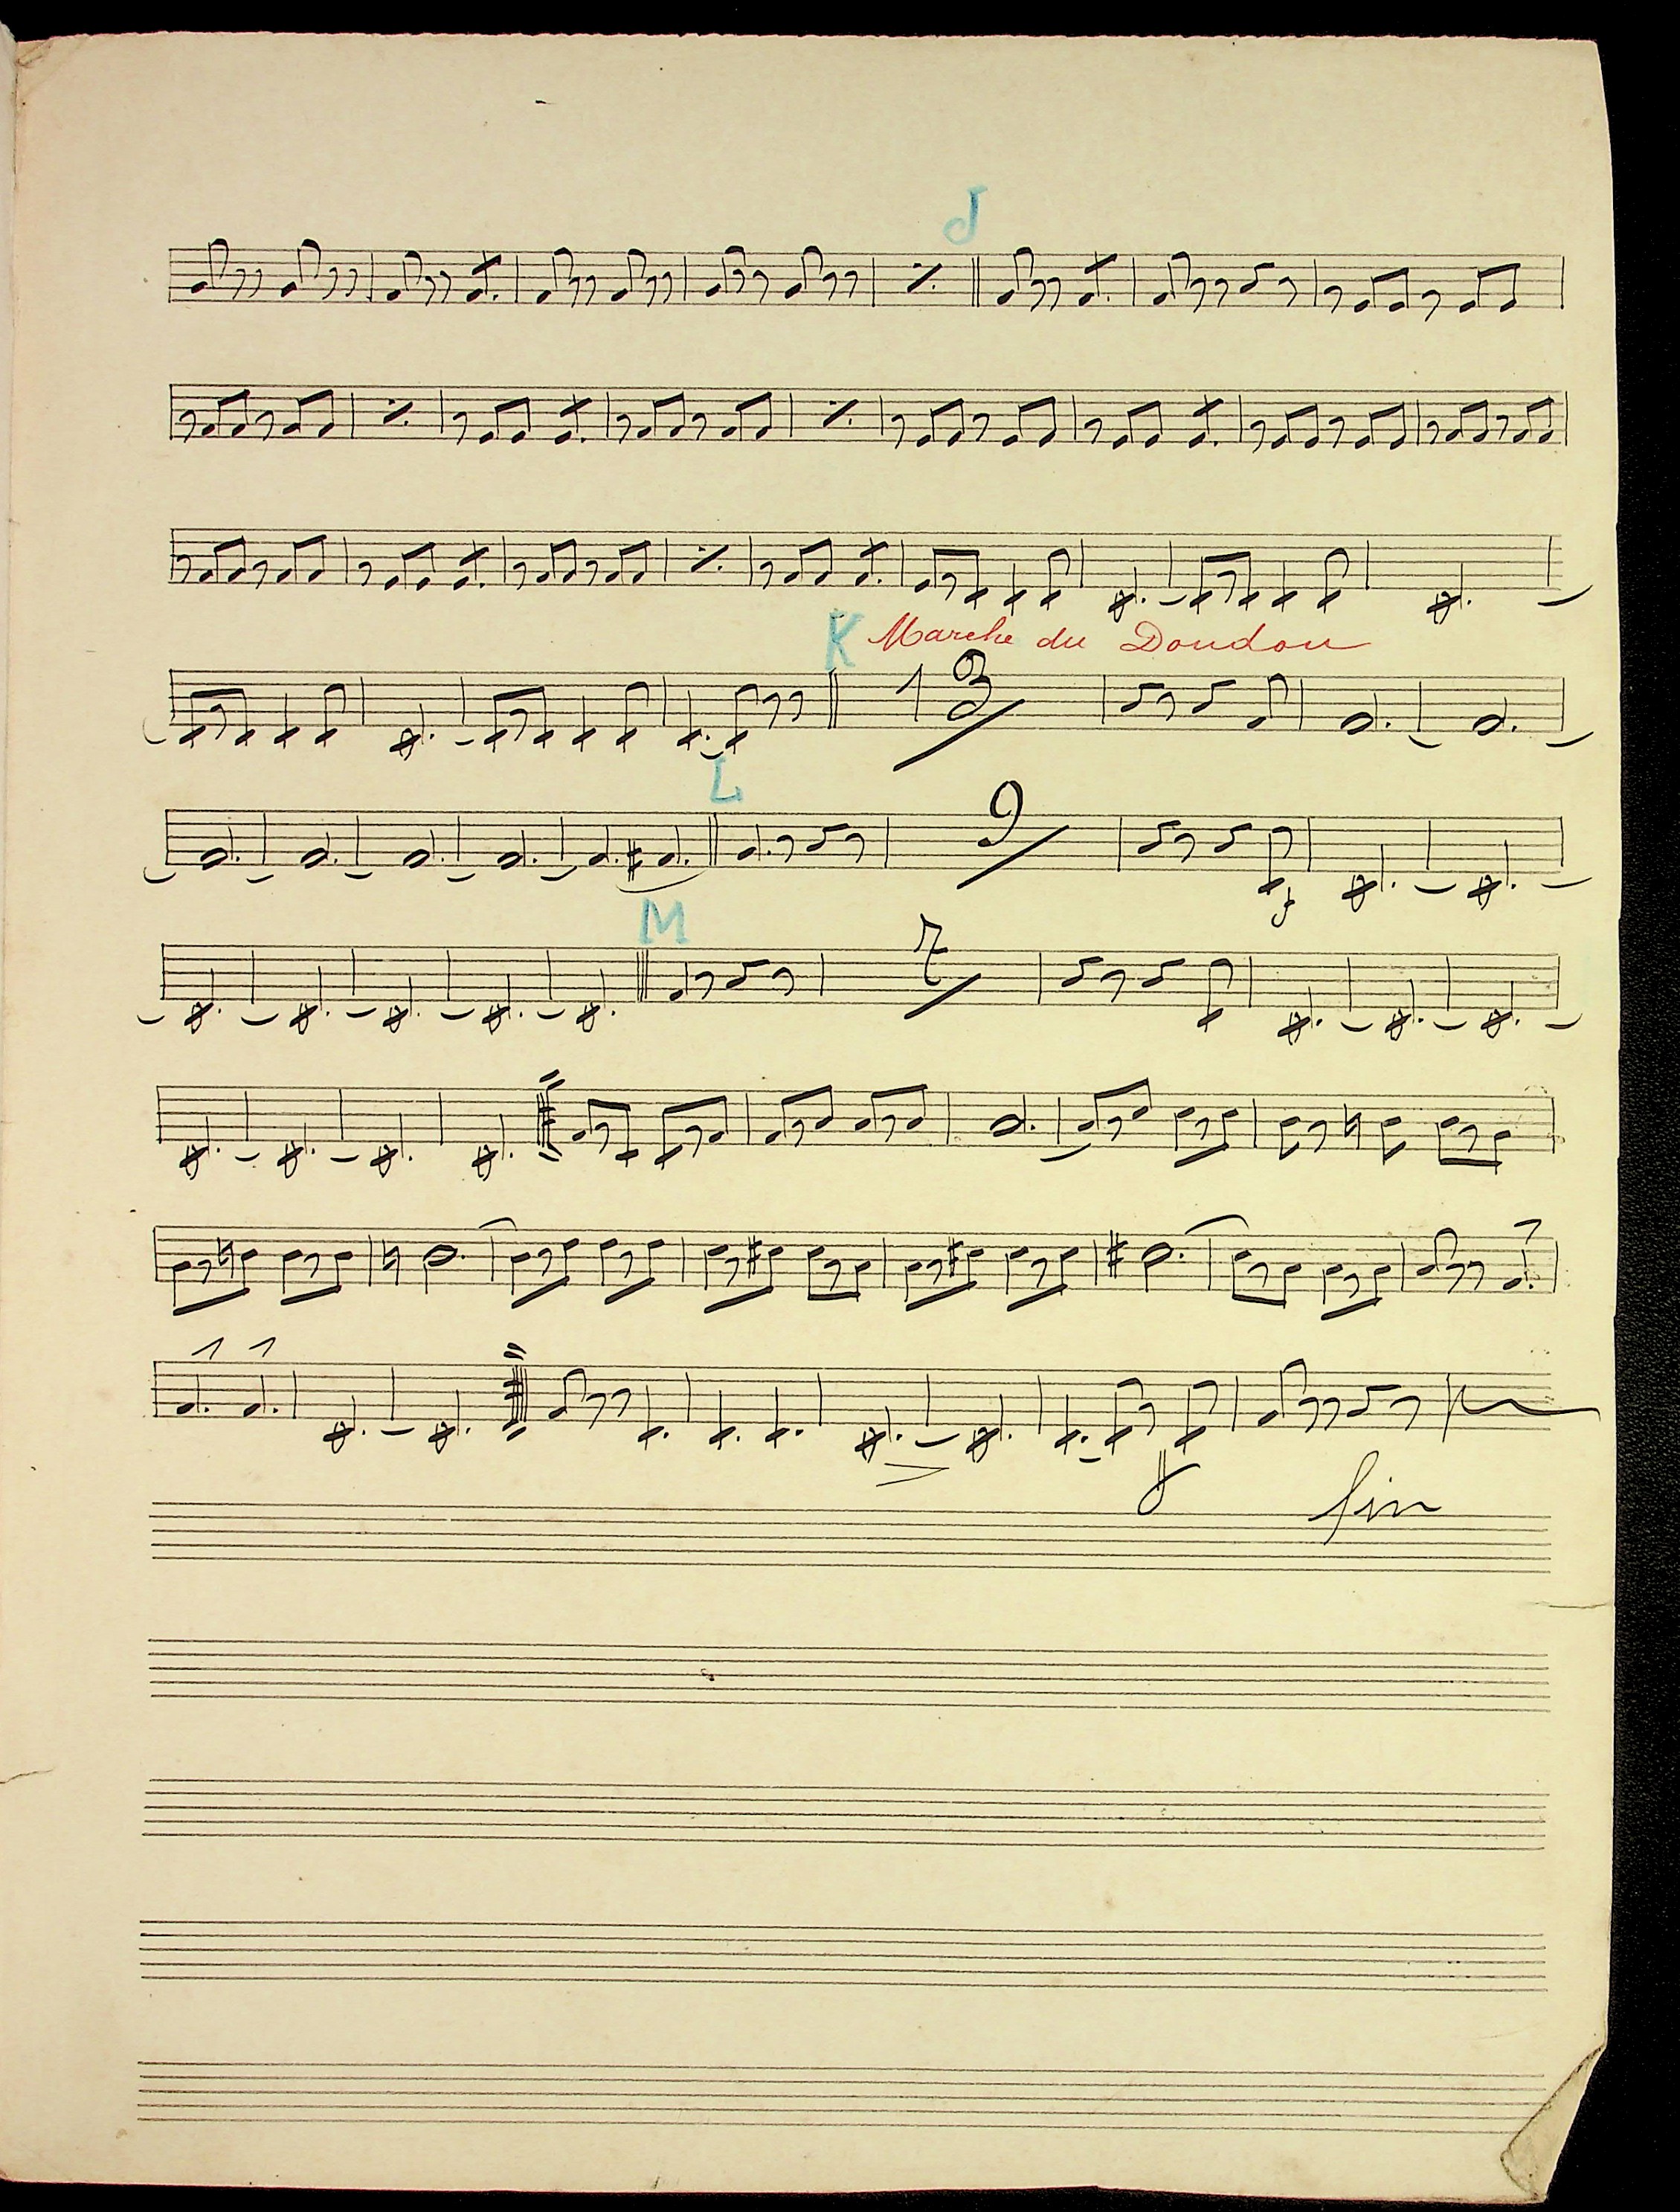 J
K Marche du Doudou
13
L
9
f
M
7
ff
fin